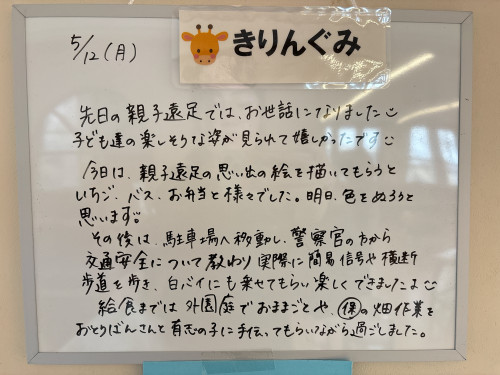 5/12(月)
きりんぐみ
先日の親子遠足では、お世話になりました
子ども達の楽しそうな姿が見られて嬉しかったです
今日は、親子遠足の思い出の絵を描いてもらうと
いちご、バス、お弁当と様々でした。明日、色をぬろうと
思います。
その後は、駐車場へ移動し、警察官の方から
交通安全について教わり実際に簡易信号や横断
歩道を歩き、白バイにも乗せてもらい楽しくできましたよ
給食までは外園庭でおままごとや、保の畑作業を
おとうばんさんと有志の子に手伝ってもらいながら過ごしました。